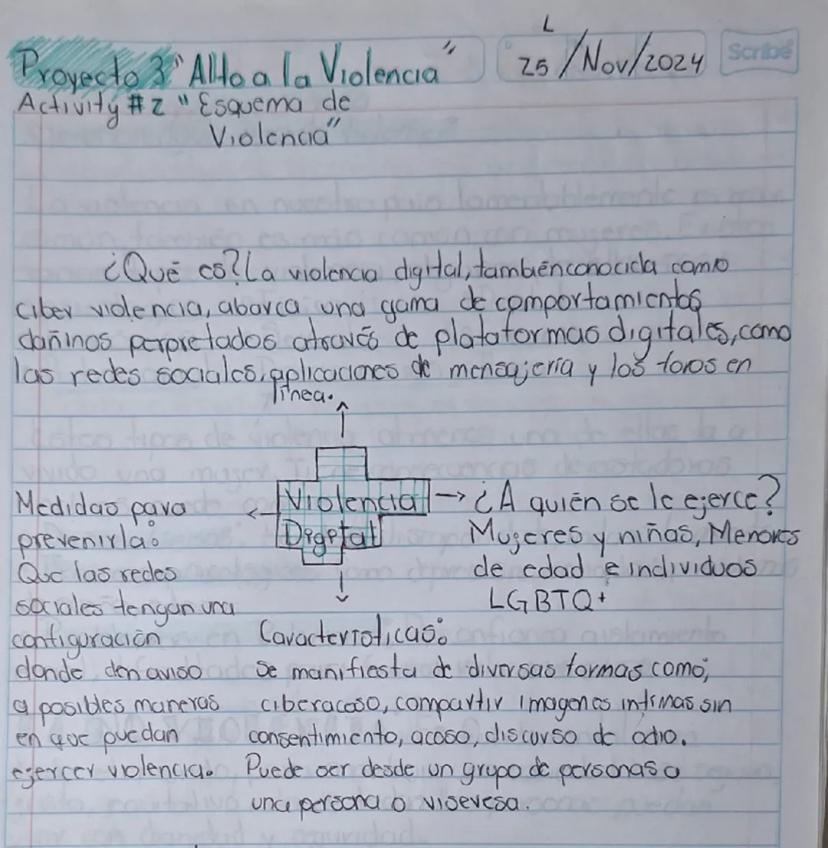 L
Proyecto 3 "Alto a la Violencia"
25/Nov/2024
Scribe
Activity #2 "Esquema de
Violencia"
¿Qué es? La violencia digital, también conocida como
ciber violencia, abarca una gama de comportamientos
dañinos perpretados através de plataformas digitales, como
las redes sociales, aplicaciones de mensajería y los foros en
línea.
Violencia
Digital
Medidas para
prevenirla:
Que las redes
sociales tengan una
configuración
donde den aviso
a posibles maneras
en que puedan
ejercer violencia.
¿A quién se le ejerce?
Mujeres y niñas, Menores
de edad e individuos
LGBTQ+
Características:
Se manifiesta de diversas formas como;
ciberacoso, compartir imagenes intimas sin
consentimiento, acoso, discurso de odio.
Puede ser desde un grupo de personas a
una persona o visevesa.